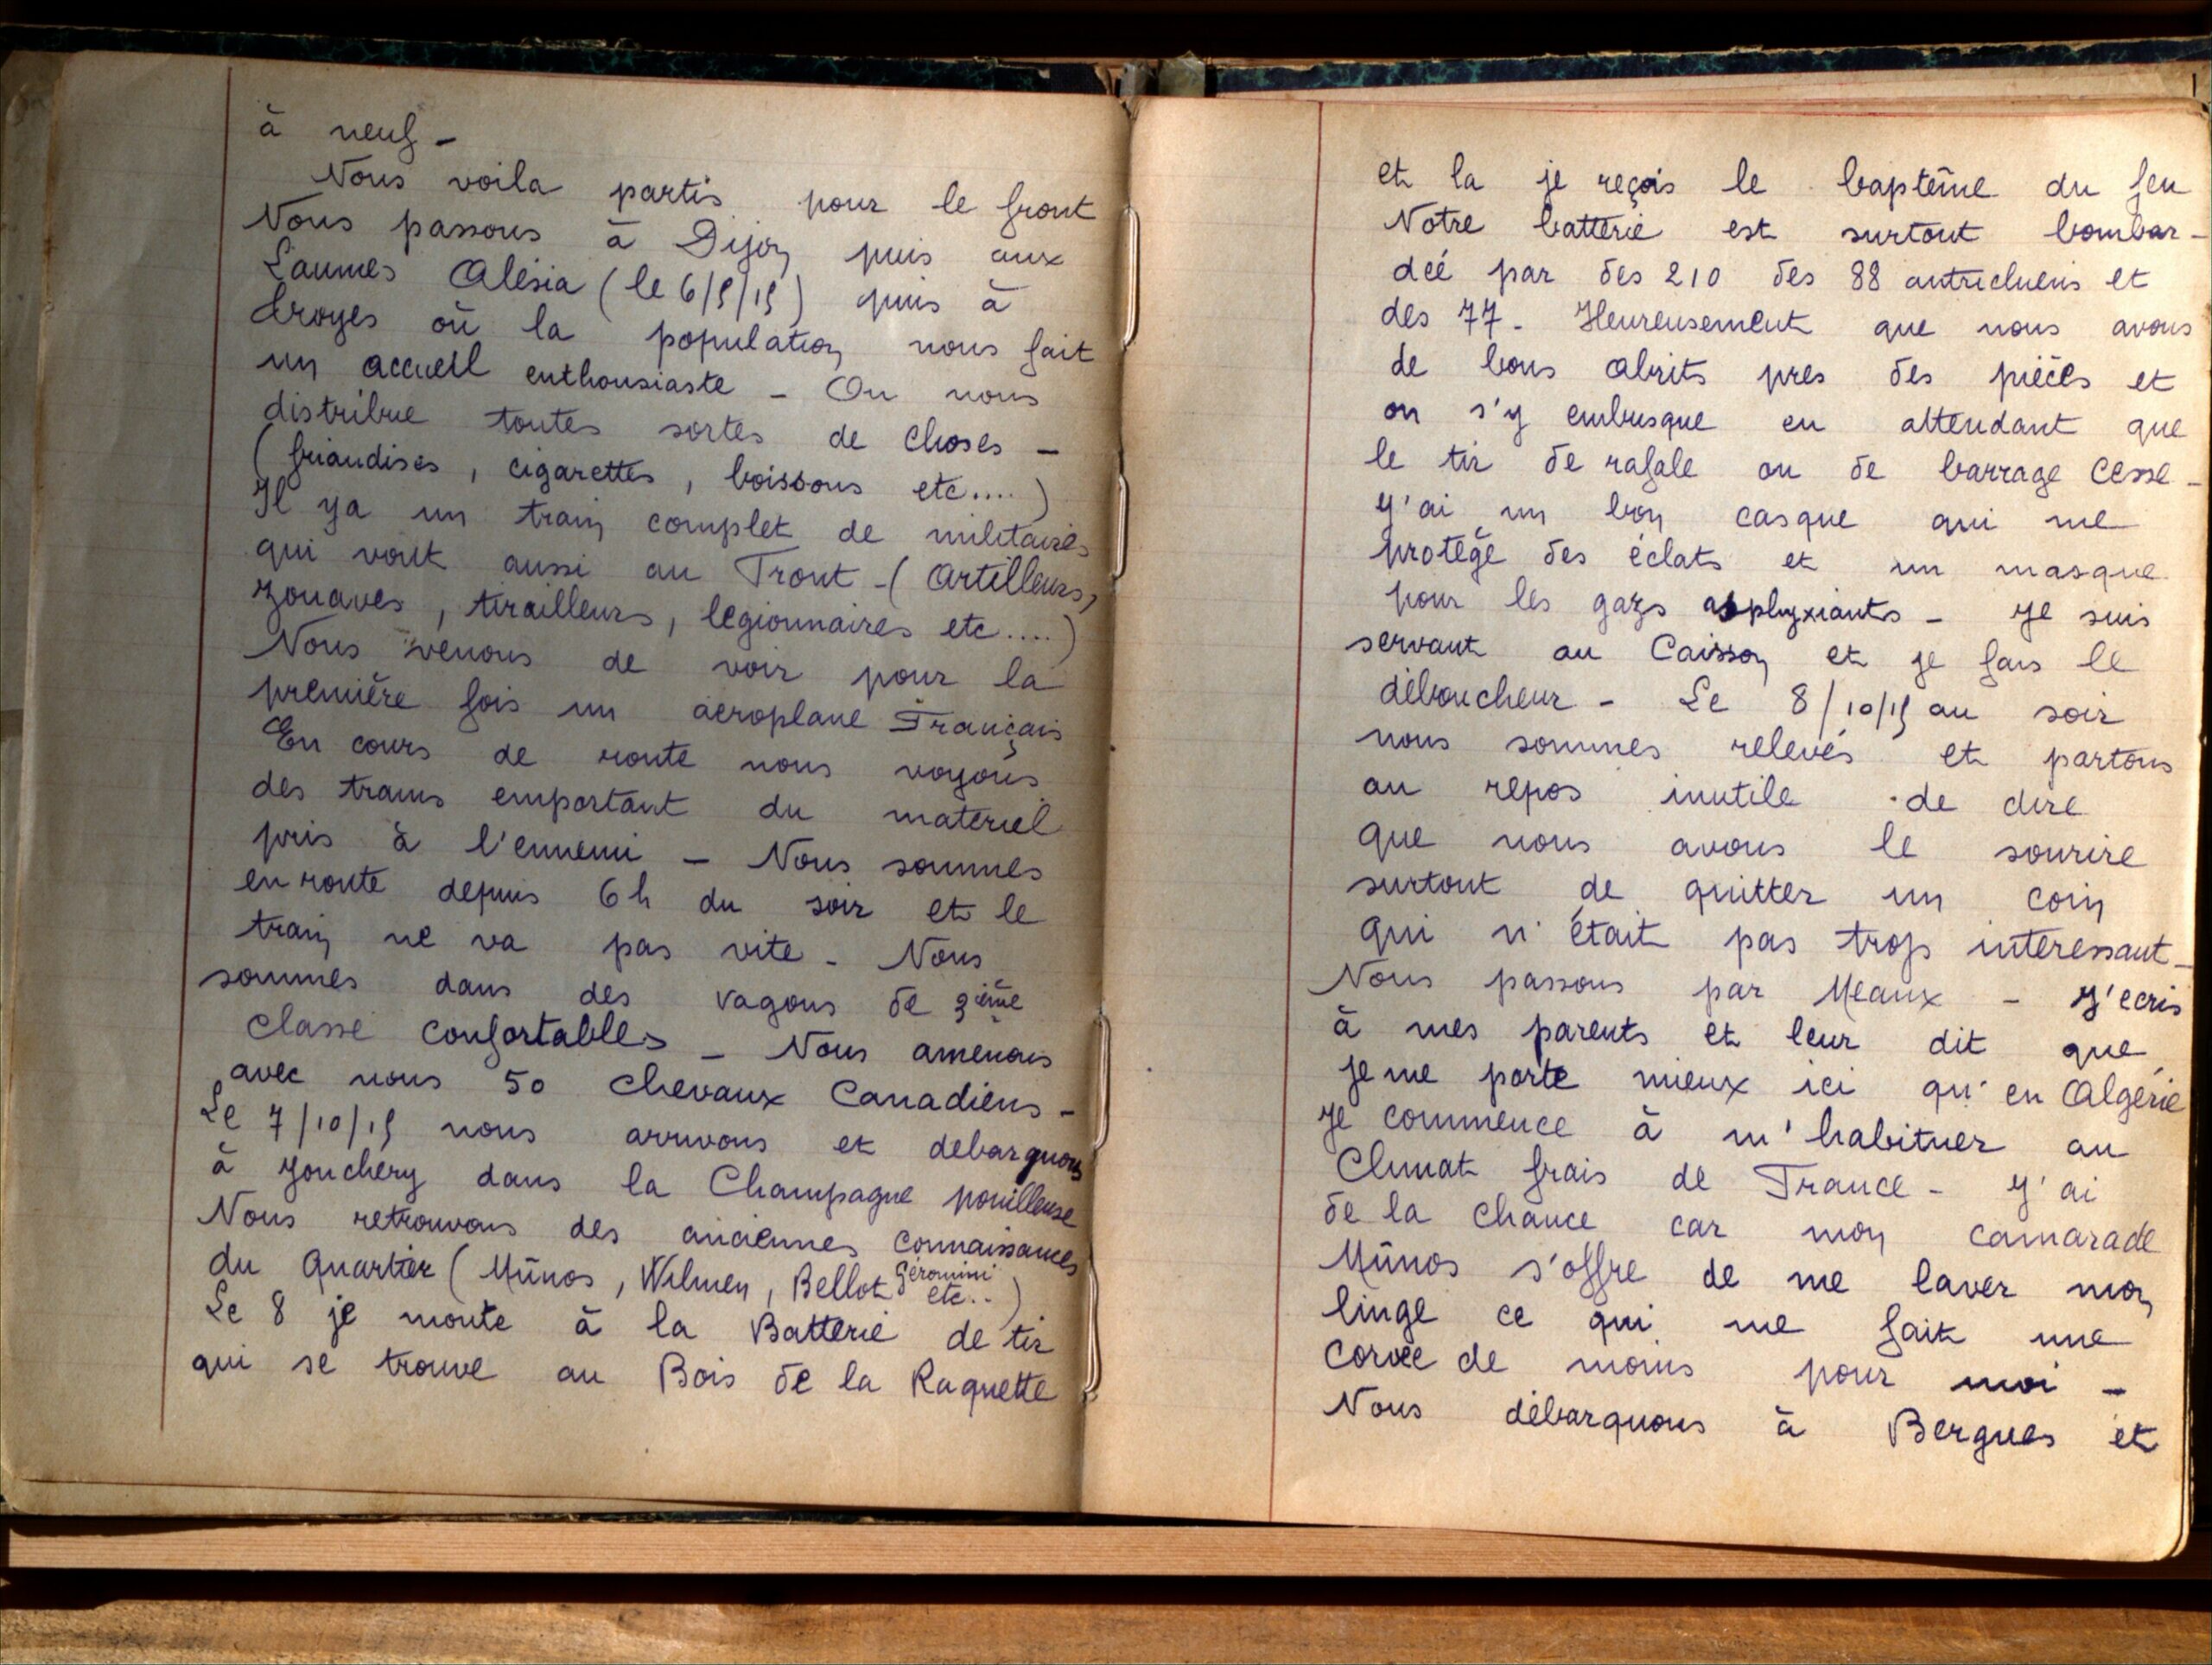 à neuf -
Nous voila partis pour le front
Nous passons à Dijon puis aux
Laumes Alésia (le 6/9/15) puis à
Troyes où la population nous fait
un accueil enthousiaste - On nous
distribue toutes sortes de choses -
(friandises, cigarettes, boissons etc....)
Il ya un train complet de militaires
qui vont aussi au Front - (Artilleurs,
zouaves, tirailleurs, legionnaires etc....)
Nous venons de voir pour la
première fois un aéroplane Français
En cours de route nous voyons
des trains emportant du matériel
pris à l'ennemi - Nous sommes
en route depuis 6h du soir et le
train ne va pas vite - Nous
sommes dans des vagons de 3ième
classe confortables - Nous amenons
avec nous 50 chevaux Canadiens -
Le 7/10/15 nous arrivons et debarquons
à Jonchéry dans la Champagne pouilleuse
Nous retrouvons des anciennes connaissances
du Quartier (Mûnos, Wilmen, Bellot Géromini etc..)
Le 8 je monte à la Batterie de tir
qui se trouve au Bois de la Raquette
et la je reçois le baptême du feu
Notre batterie est surtout bombar-
deé par des 210 des 88 autrichiens et
des 77 - Heureusement que nous avons
de bons abrits pres des pièces et
on s'y embusque en attendant que
le tir de rafale ou de barrage cesse -
J'ai un bon casque qui me
protège des éclats et un masque
pour les gazs asphyxiants - Je suis
servant au Caisson et je fais le
déboucheur - Le 8/10/15 au soir
nous sommes relevés et partons
au repos inutile de dire
que nous avons le sourire
surtout de quitter un coin
qui n'était pas trop intéressant -
Nous passons par Meaux - J'écris
à mes parents et leur dit que
je me porte mieux ici qu'en Algérie
Je commence à m'habituer au
Climat frais de France - J'ai
de la chance car mon camarade
Mûnos s'offre de me laver mon
linge ce qui me fait une
corvée de moins pour moi -
Nous débarquons à Bergues et